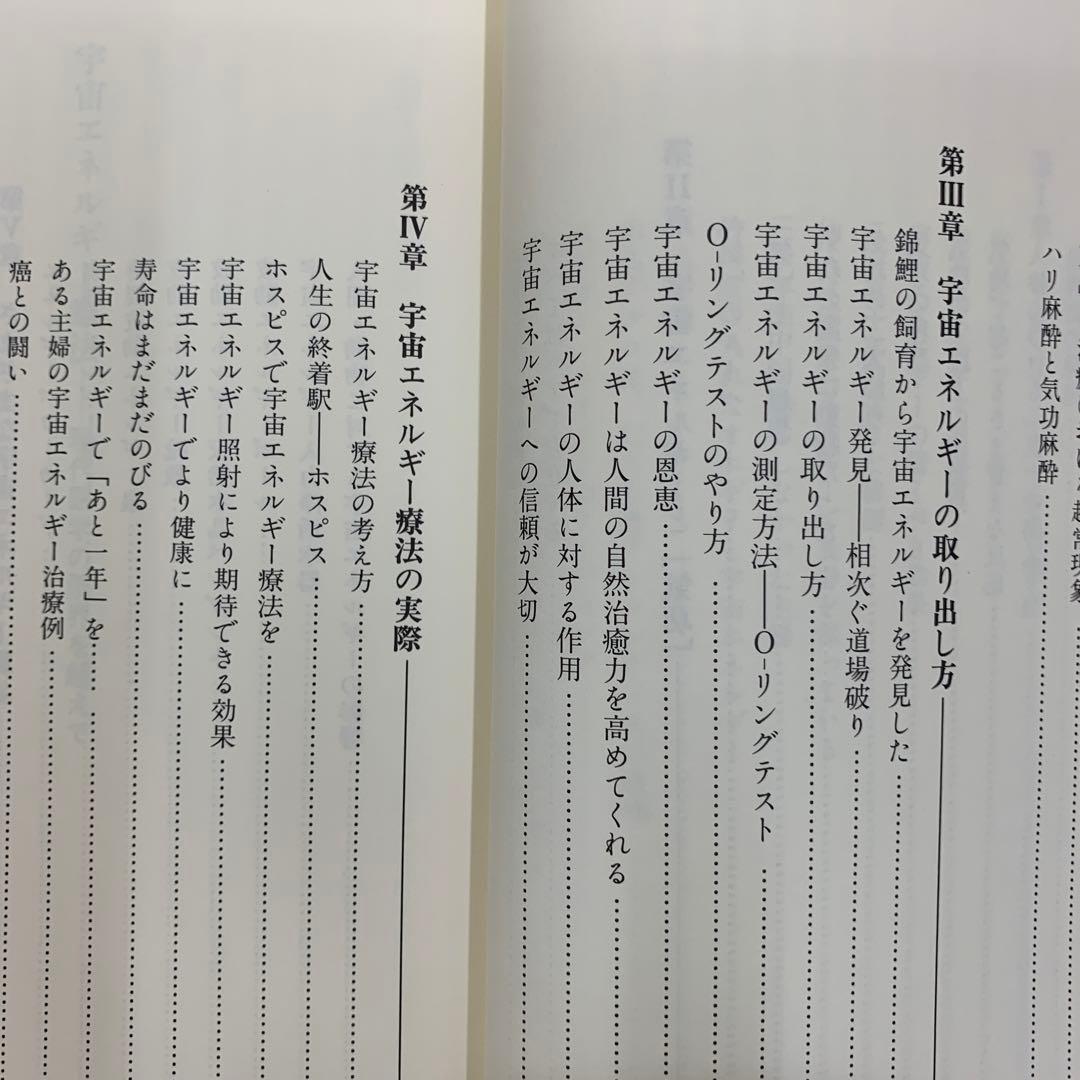 超常現象
ハリ麻酔と気功麻酔
第III章 宇宙エネルギーの取り出し方
錦鯉の飼育から宇宙エネルギーを発見した
宇宙エネルギー発見――相次ぐ道場破り
宇宙エネルギーの取り出し方
宇宙エネルギーの測定方法――O-リングテスト
O-リングテストのやり方
宇宙エネルギーの恩恵
宇宙エネルギーは人間の自然治癒力を高めてくれる
宇宙エネルギーの人体に対する作用
宇宙エネルギーへの信頼が大切
第IV章 宇宙エネルギー療法の実際
宇宙エネルギー療法の考え方
人生の終着駅――ホスピス
ホスピスで宇宙エネルギー療法を
宇宙エネルギー照射により期待できる効果
宇宙エネルギーでより健康に
寿命はまだまだのびる
宇宙エネルギーで「あと一年」を……
ある主婦の宇宙エネルギー治療例
癌との闘い